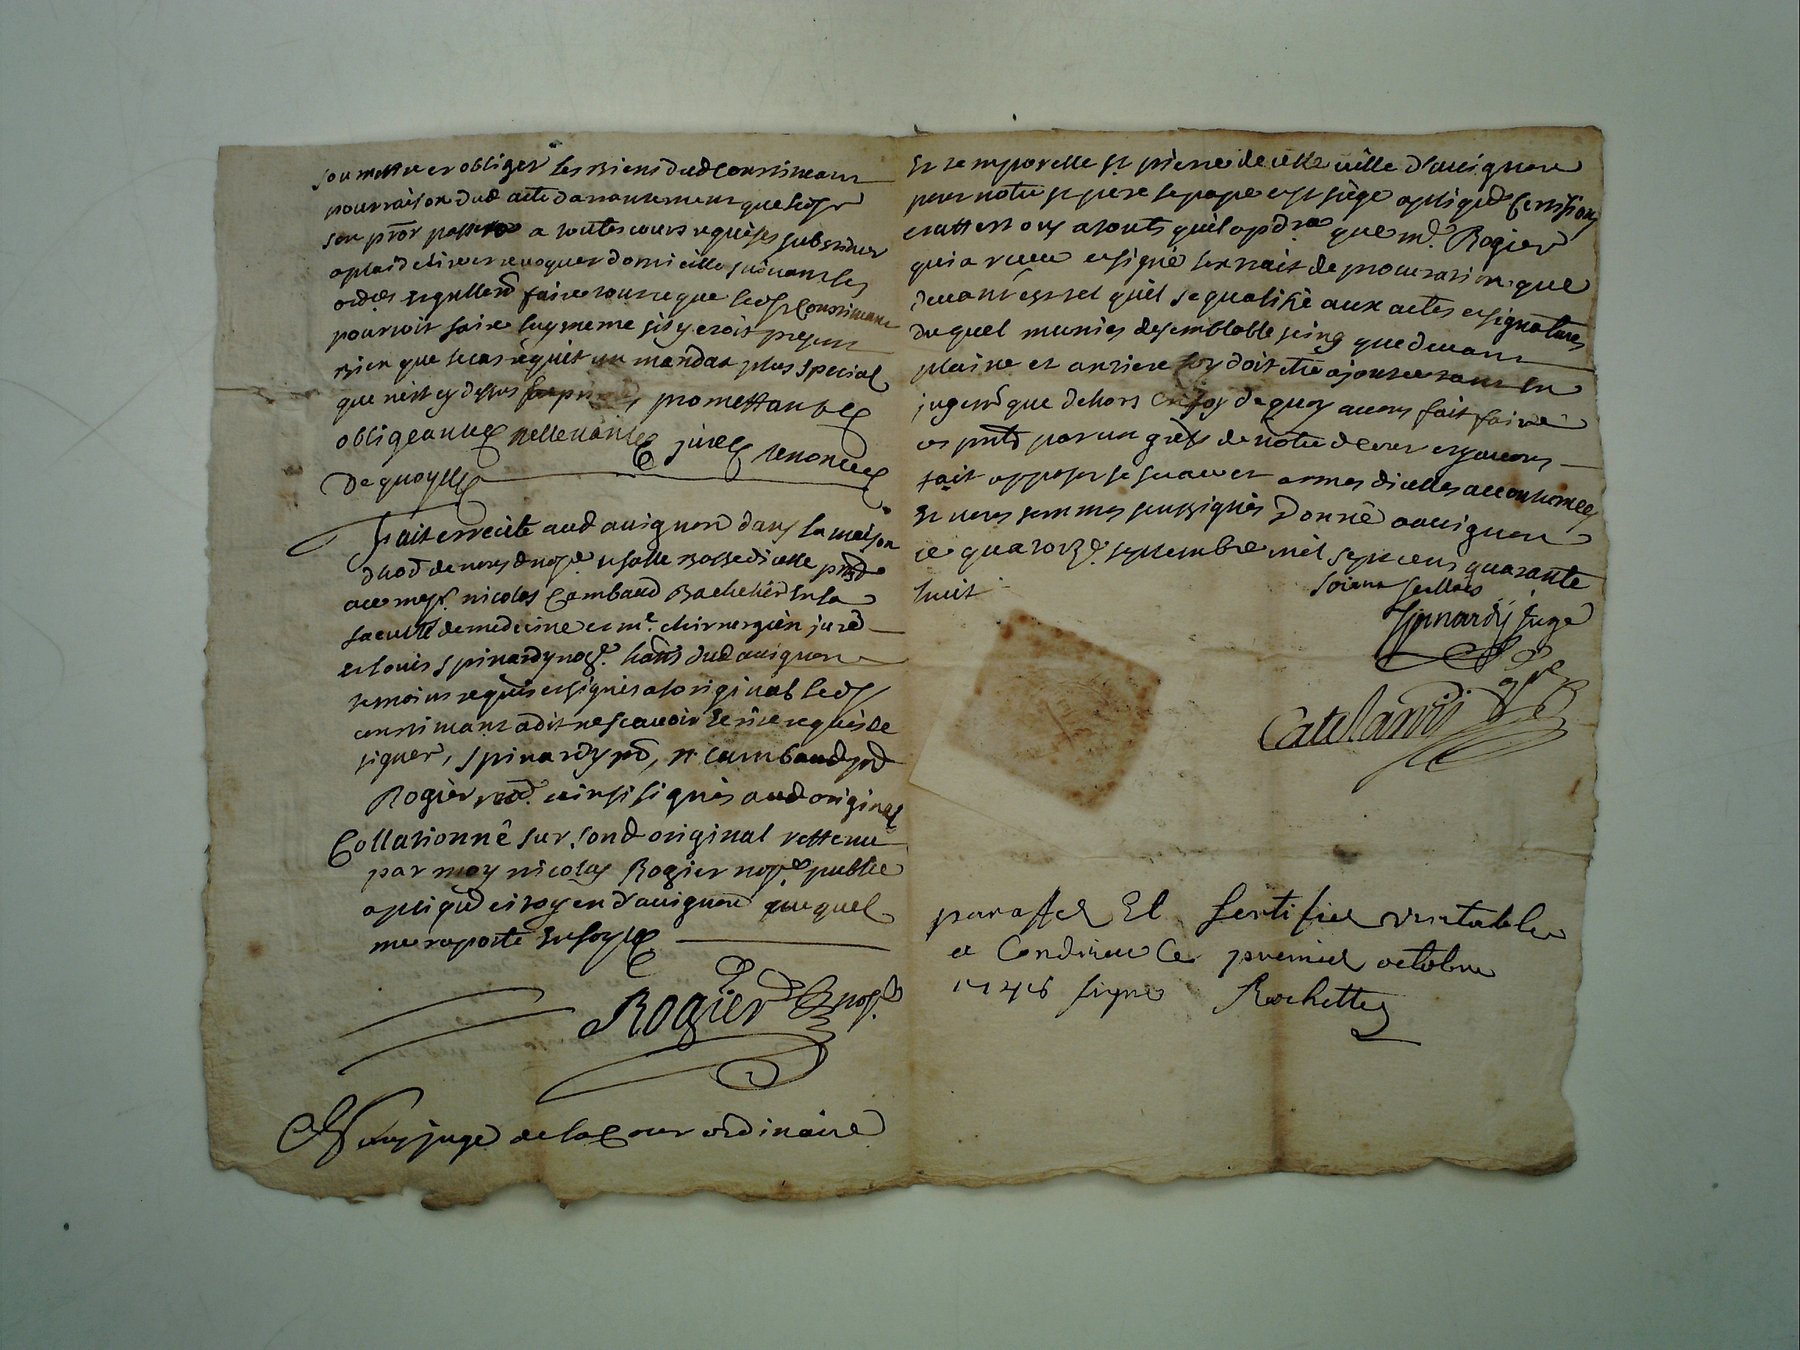 soumettre et obliger les biens dud constituant
pour raison dud acte darrantement que led sr
son pror passera a toutes cours requises subsidier
a plaid elire et revoquer domicille suivant les
ordres et gnllemt faire tout ce que led sr constituant
pourroit faire luy meme sil y etoit present
bien que le cas requit un mandat plus special
que nest cy dessus promettant &
obligeant & rellevant & jure & renonce &
De quoy &
fait et recité aud avignon dans la maison
dhaôn de nous d nore et salle basse dicelle pnts
avec mess. nicolas Cambaud Bachelier en la
faculté de medecine et me. chirurgien juré
et louis spinardy nore. hants dud avignon
temoins requis et signés a loriginal led sr
constituant a dit ne scavoir ecrire requis de
signer, spinardy pnt, n cambaud pnt
Rogier nore. ainsi signés aud original
Collationné sur sond original rettenu
par moy nicolas Rogier nore public
aplique citoyen d'avignon auquel
me raporte en foy &
Rogier nore.
Nous juge de la Cour ordinaire
Et temporelle st pierre de cette ville d'avignon
pour notre st pere le pape et st siege aplique Certifions
et attestons a touts quil apdra que me. Rogier
qui a receu et signé lextrait de procuration que
devant est tel quil se qualifie aux actes et signatures
duquel munies de semblable seing que devant
plaine et entiere foy doit etre ajoutée tant en
jugemt que dehors En foy de quoy avons fait faire
ces pntes par un grefr de notre d cour et y avons
fait apposer le sceau et armes dicelles accoutumées
Et nous sommes soussignés Donné a avignon
ce quatorze. septembre mil sept cens quarante
huit
Spinardy juge
Catelandi
paraffé Et Certifié veritable
a Condrieu Ce premier octobre
1748 signé Rochette